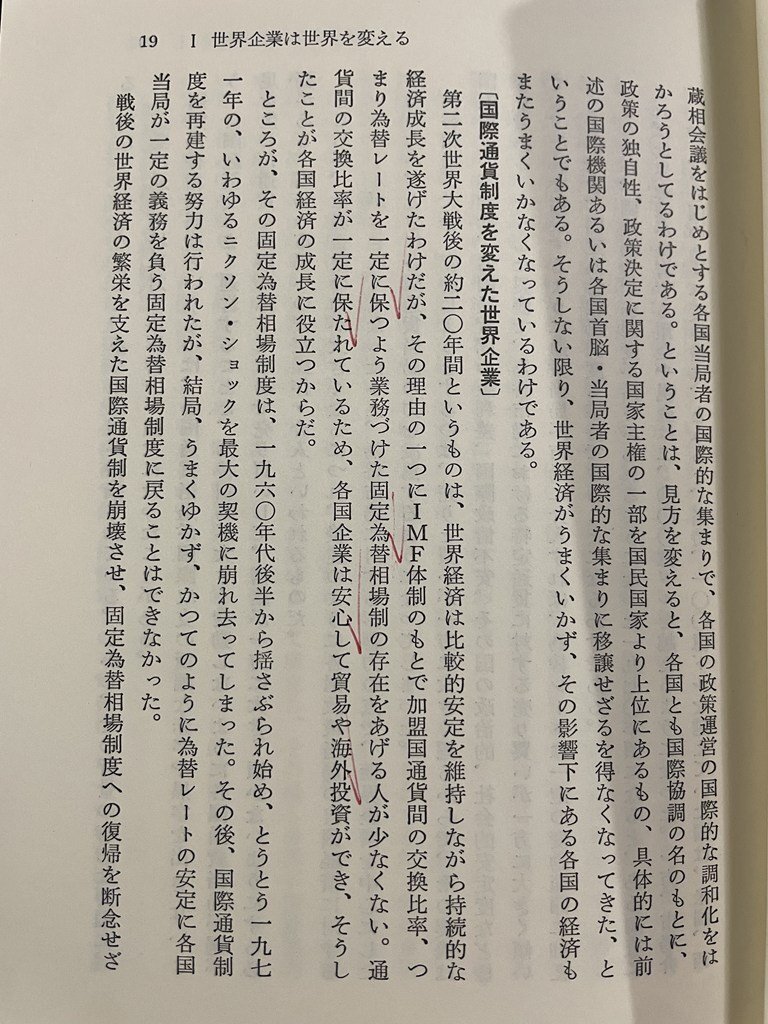 19　I　世界企業は世界を変える
蔵相会議をはじめとする各国当局者の国際的な集まりで、各国の政策運営の国際的な調和化をは
かろうとしてるわけである。ということは、見方を変えると、各国とも国際協調の名のもとに、
政策の独自性、政策決定に関する国家主権の一部を国民国家より上位にあるもの、具体的には前
述の国際機関あるいは各国首脳・当局者の国際的な集まりに移譲せざるを得なくなってきた、と
いうことでもある。そうしない限り、世界経済がうまくいかず、その影響下にある各国の経済も
またうまくいかなくなっているわけである。
〔国際通貨制度を変えた世界企業〕
第二次世界大戦後の約二〇年間というものは、世界経済は比較的安定を維持しながら持続的な
経済成長を遂げたわけだが、その理由の一つにIMF体制のもとで加盟国通貨間の交換比率、つ
まり為替レートを一定に保つよう業務づけた固定為替相場制の存在をあげる人が少なくない。通
貨間の交換比率が一定に保たれているため、各国企業は安心して貿易や海外投資ができ、そうし
たことが各国経済の成長に役立つからだ。
ところが、その固定為替相場制度は、一九六〇年代後半から揺さぶられ始め、とうとう一九七
一年の、いわゆるニクソン・ショックを最大の契機に崩れ去ってしまった。その後、国際通貨制
度を再建する努力は行われたが、結局、うまくゆかず、かつてのように為替レートの安定に各国
当局が一定の義務を負う固定為替相場制度に戻ることはできなかった。
戦後の世界経済の繁栄を支えた国際通貨制を崩壊させ、固定為替相場制度への復帰を断念せざ